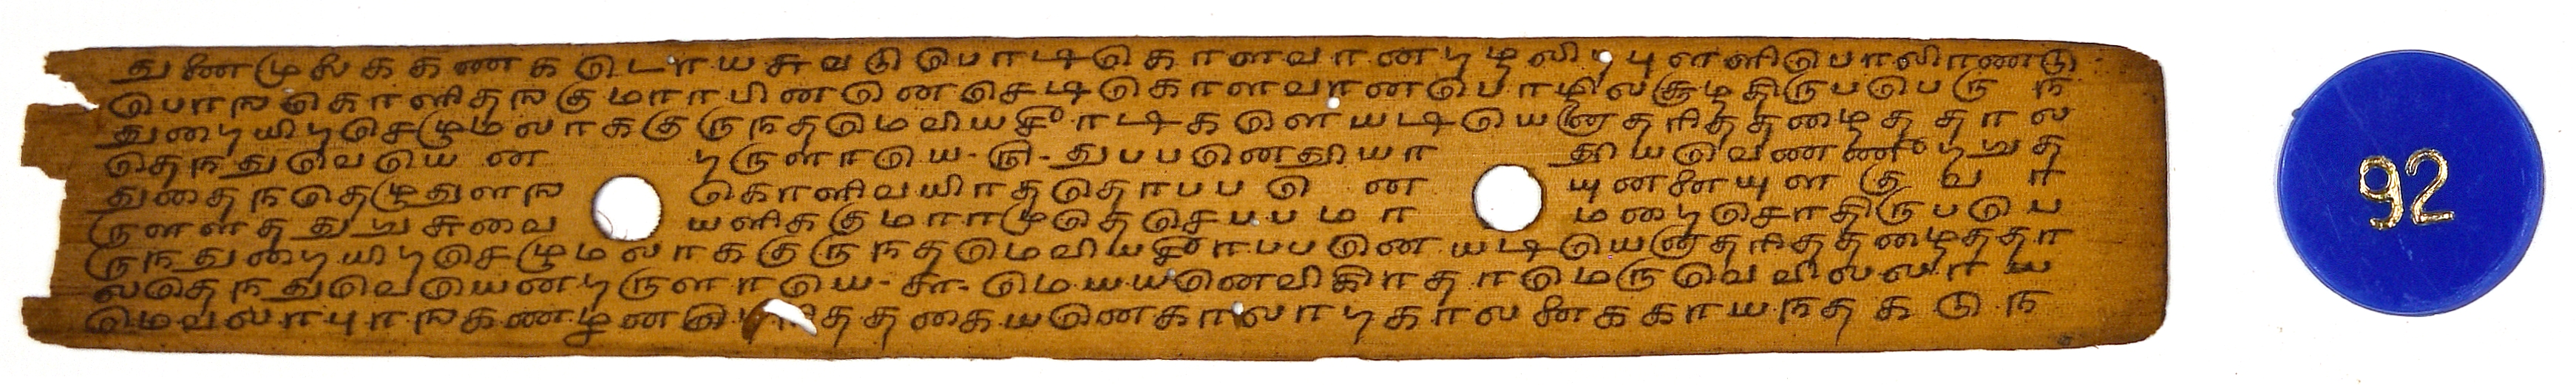 துணைமுலைககணகடொயசுவடுபொடிகொளவானறழலிறபுளளிபொலிரணடு
பொஙகொளிதஙகுமாரபினனெசெடிகொளவானபொழிலசூழதிருபபெருந
துறையிறசெழுமலரககுருநதமெவியசீரடிகளெயடியெனாதரிததழைததால
தெநதுவெயென றருளாயெ-௫-துபபனெதூயா தூயவெணணீறுது
துதைநதெழுதுளங கொளிவயிரததொபபனெ யுனனையுளகுவார
ருளளததுறுசுவை யளிககுமாரமுதெசெபபமா மறைசெரதிருபபெ
ருநதுறையிறசெழுமலரககுருநதமெவியசீரபபனெயடியெனாதரிததழைததா
லதெநதுவெயெனறருளாயெ-௬-மெயயனெவிகிரதாமெருவெவிலலாய
மெவலரபுரஙகணமூனறெரிததகையனெகாலாறகாலனைககாயநதகடுந
92